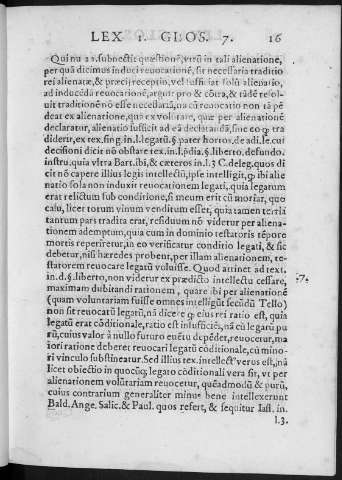 LEX 1. GLOS. 7. 16
Qui nu. 22. subnectit quæstionē, vtrū in tali alienatione,
per quā dicimus induci reuocationē, sit necessaria traditio
rei alienatæ, & præcij receptio, vel sufficiat solū alienatio,
ad inducēdā reuocationē, arguit pro & cōtra, & tādē resol-
uit traditionē nō esse necessariā, nā cū reuocatio non tā pē
deat ex alienatione, quā ex volūtate, quæ per alienationē
declaratur, alienatio sufficit ad eā declarandā, sine eo q tra
diderit, ex tex. sing. in. l. legatū. §. pater hortos, de adi. le. cui
decisioni dicit nō obstare tex. in. l. prædia. §. liberto, de fundo.
instru. quia vltra Bart. ibi, & cæteros in. l. 3 C. de leg. quos di
cit nō capere illius legis intellectū, ipse intelligit, q ibi alie
natio sola non induxit reuocationem legati, quia legatum
erat relictum sub conditione, si meum erit cū moriar, quo
casu, licet totum vinum venditum esset, quia tamen tertia
tantum pars tradita erat, residuum nō videtur per aliena-
tionem ademptum, quia cum in dominio testatoris tēpore
mortis reperiretur, in eo verificatur conditio legati, & sic
debetur, nisi hæredes probent, per illam alienationem, te-
statorem reuocare legatū voluisse. Quod attinet ad text.
in. d. §. liberto, non videtur ex prædicto intellectu cessare, 7.
maximam dubitandi rationem, quare ibi per alienationē
(quam voluntariam fuisse omnes intelligūt secūdū Tello)
non sit reuocatū legatū, nā dicere q eius rei ratio est, quia
legatū erat cōditionale, ratio est insufficiēs, nā cū legatū pu
rū, cuius valor à nullo futuro euētu depēdet, reuocetur, ma
iori ratione deberet reuocari legatū cōditionale, cū mino-
ri vinculo substineatur. Sed illius tex. intellect' verus est, nā
licet obiectio in quocūq; legato cōditionali vera sit, vt per
alienationem volūtariam reuocetur, quēadmodū & purū,
cuius contrarium generaliter minus bene intellexerunt
Bald. Ange. Salic. & Paul. quos refert, & sequitur Ias. in.
l. 3.